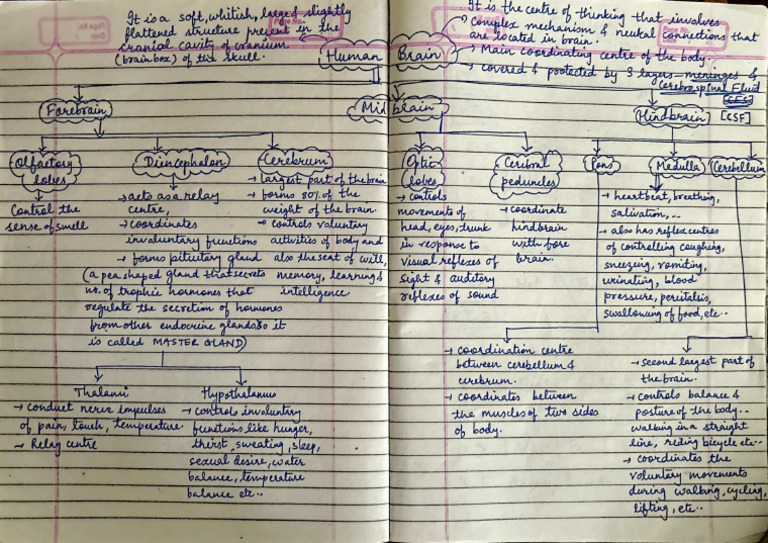 It is a soft, whitish, large & slightly
flattened structure present in the
cranial cavity of cranium
(brain box) of the skull.
It is the centre of thinking that involves
complex mechanism & neutral connections that
are located in brain.
→ Main coordinating centre of the body.
→ covered & protected by 3 layers - meninges &
Cerebrospinal Fluid
[CSF]
Human Brain
Forebrain
Mid brain
Hindbrain
Olfactory
lobes
Control the
sense of smell
Diencephalon
→ acts as a relay
centre,
→ coordinates
involuntary functions
→ forms pituitary gland
(a pea shaped gland that secrets
no. of trophic hormones that
regulate the secretion of hormones
from other endocrine glands so it
is called MASTER GLAND)
Cerebrum
→ largest part of the brain
→ forms 80% of the
weight of the brain
→ controls voluntary
activities of body and
also the seat of will,
memory, learning &
intelligence
Thalami
→ conduct nerve impulses
of pain, touch, temperature.
→ Relay centre
Hypothalamus
→ controls involuntary
functions like hunger,
thirst, sweating, sleep,
sexual desire, water
balance, temperature
balance etc..
Optic
lobes
→ controls
movements of
head, eyes, trunk
in response to
visual reflexes of
sight & auditory
reflexes of sound
Ceribral
peduncles
→ coordinate
hindbrain
with fore
brain.
Pons
→ coordination centre
between cerebellum &
cerebrum.
→ coordinates between
the muscles of two sides
of body.
Medulla
→ heartbeat, breathing,
salivation,...
→ also has reflex centres
of controlling coughing,
sneezing, vomiting,
urinating, blood
pressure, peristalsis,
swallowing of food, etc..
Cerebellum
→ second largest part of
the brain.
→ controls balance &
posture of the body..
walking in a straight
line, riding bicycle etc..
→ coordinates the
voluntary movements
during walking, cycling,
lifting, etc..